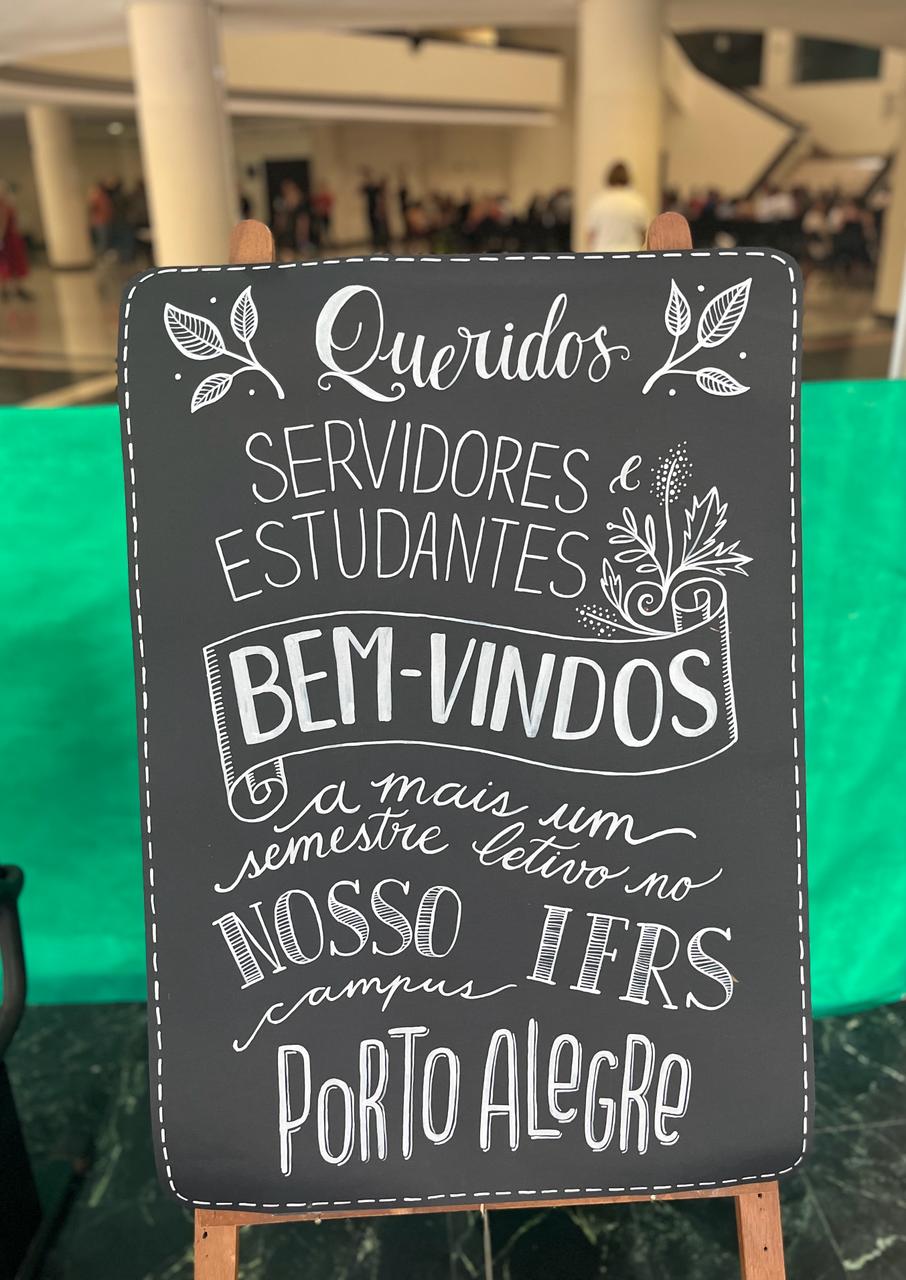 Queridos
SERVIDORES e
ESTUDANTES
BEM-VINDOS
a mais um
semestre letivo no
NOSSO IFRS
campus
PORTO ALEGRE